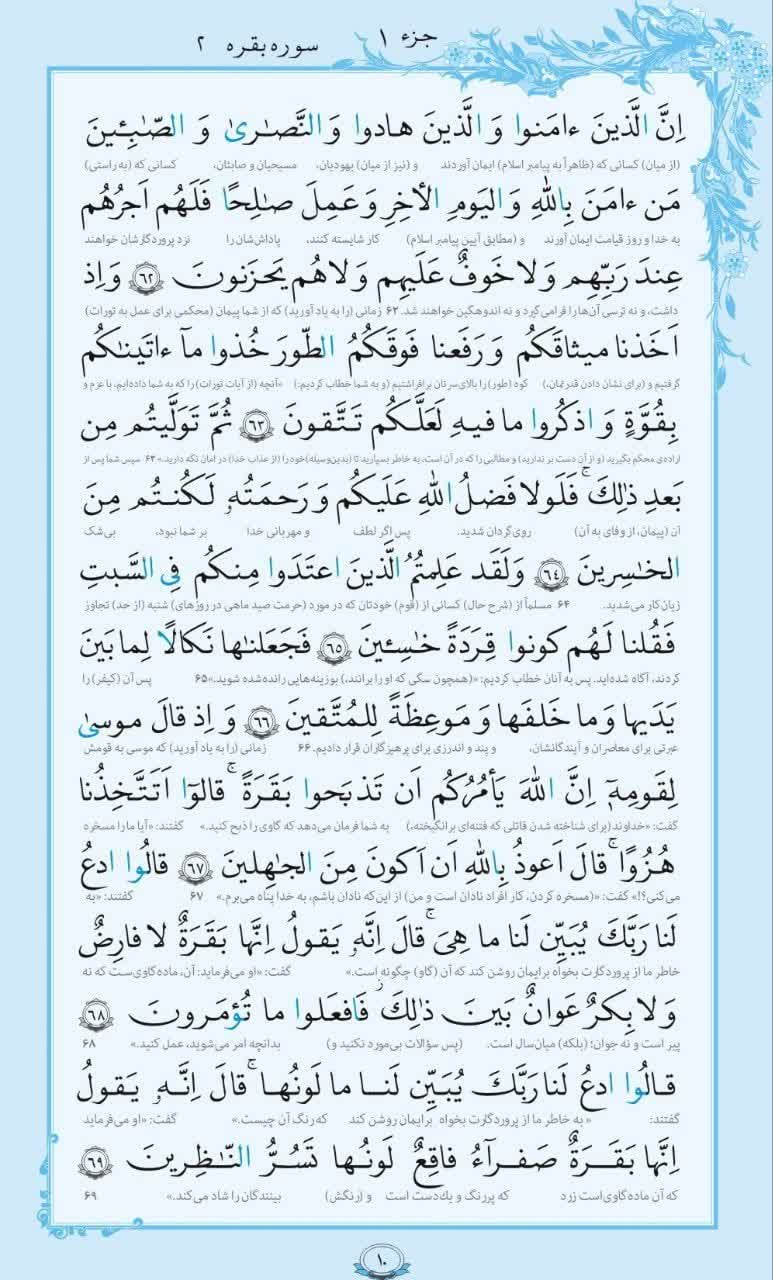 جزء ۱
سوره بقره ۲
اِنَّ الَّذینَ ءامَنوا وَ الَّذینَ هادوا وَ النَّصـٰریٰ وَ الصّـٰبِـئینَ
(از میان) کسانی که (ظاهراً به پیامبر اسلام) ایمان آوردند و (نیز از میان) یهودیان، مسیحیان و صابئان، کسانی که (به راستی)
مَن ءامَنَ بِاللهِ وَ الیَومِ الأخِرِ وَ عَمِلَ صـٰلِحًا فَلَهُم اَجرُهُم
به خدا و روز قیامت ایمان آورند و (مطابق آیین پیامبر اسلام) کار شایسته کنند، پاداش‌شان را نزد پروردگارشان خواهند
عِندَ رَبِّهِم وَ لا خَوفٌ عَلَیهِم وَ لا هُم یَحزَنونَ ﴿٦٢﴾ وَ اِذ
داشت، و نه ترسی آن‌ها را فرا می‌گیرد و نه اندوهگین خواهند شد. ۶۲ زمانی (را به یاد آورید) که از شما پیمان (محکمی برای عمل به تورات)
اَخَذنا میثاقَکُم وَ رَفَعنا فَوقَکُمُ الطّورَ خُذوا مآ ءاتَینـٰکُم
گرفتیم و (برای نشان دادن قدرتمان،) کوه (طور) را بالای سرتان برافراشتیم (و به شما خطاب کردیم:) «آنچه (از آیات تورات) را که به شما داده‌ایم، با عزم و
بِقُوَّةٍ وَ اذکُروا ما فیـهِ لَعَلَّـکُم تَـتَّقونَ ﴿٦٣﴾ ثُمَّ تَوَلَّیتُم مِن
اراده‌ی محکم بگیرید (و از آن دست بر ندارید) و مطالبی را که در آن است، به خاطر بسپارید تا (بدین‌وسیله) خود را (از عذاب خدا) در امان نگه دارید.» ۶۳ سپس شما پس از
بَعدِ ذٰلِکَ ۚ فَلَولا فَضلُ اللهِ عَلَیکُم وَ رَحمَتُهُ لَـکُنتُـم مِنَ
آن (پیمان، از وفای به آن) روی‌گردان شدید. پس اگر لطف و مهربانی خدا بر شما نبود، بی‌شک
الخـٰسِرینَ ﴿٦٤﴾ وَ لَقَد عَلِمتُمُ الَّذینَ اعتَدَوا مِنکُم فِی السَّبتِ
زیان‌کار می‌شدید. ۶۴ مسلماً از (شرح حال) کسانی از (قوم) خودتان که در مورد (حرمت صید ماهی در روزهای) شنبه (از حد) تجاوز
فَقُلنا لَهُم کونوا قِرَدَةً خـٰسِـئینَ ﴿٦٥﴾ فَجَعَلنـٰها نَکالًا لِما بَینَ
کردند، آگاه شده‌اید. پس به آنان خطاب کردیم: «(همچون سگی که او را برانند،) بوزینه‌هایی رانده‌شده شوید.» ۶۵ پس آن (کیفر) را
یَدَیها وَ ما خَلفَها وَ مَوعِظَةً لِلمُتَّقینَ ﴿٦٦﴾ وَ اِذ قالَ موسیٰ
عبرتی برای معاصران و آیندگانشان، و پند و اندرزی برای پرهیزگاران قرار دادیم. ۶۶ زمانی (را به یاد آورید) که موسی به قومش
لِقَومِهٓ اِنَّ اللهَ یَأمُرُکُم اَن تَذبَحوا بَقَرَةً ۚ قالوٓا اَتَتَّخِذُنا
گفت: «خداوند (برای شناخته شدن قاتلی که فتنه‌ای برانگیخته،) به شما فرمان می‌دهد که گاوی را ذبح کنید.» گفتند: «آیا ما را مسخره
هُزُوًا ۚ قالَ اَعوذُ بِاللهِ اَن اَکونَ مِنَ الجـٰهِلینَ ﴿٦٧﴾ قالُوا ادعُ
می‌کنی؟!» گفت: «(مسخره کردن، کار افراد نادان است و من) از این‌که نادان باشم، به خدا پناه می‌برم.» ۶۷ گفتند: «به
لَنا رَبَّکَ یُبَیِّن لَنا ما هِیَ ۚ قالَ اِنَّهُ یَقولُ اِنَّها بَقَرَةٌ لا فارِضٌ
خاطر ما از پروردگارت بخواه برایمان روشن کند که آن (گاو) چگونه است.» گفت: «او می‌فرماید: آن، ماده‌گاوی‌ست که نه
وَ لا بِکرٌ عَوانٌ بَینَ ذٰلِکَ ۖ فَافعَلوا ما تُؤمَرونَ ﴿٦٨﴾
پیر است و نه جوان؛ (بلکه) میان‌سال است. (پس سؤالات بی‌مورد نکنید و) بدانچه امر می‌شوید، عمل کنید.» ۶۸
قالُوا ادعُ لَنا رَبَّکَ یُبَیِّن لَنـا ما لَونُهـا ۚ قالَ اِنَّـهُ یَـقولُ
گفتند: «به خاطر ما از پروردگارت بخواه برایمان روشن کند که رنگ آن چیست.» گفت: «او می‌فرماید
اِنَّها بَقَـرَةٌ صَفـرآءُ فاقِعٌ لَونُـها تَسُرُّ النّـٰظِرینَ ﴿٦٩﴾
که آن ماده‌گاوی‌است زرد که پررنگ و یک‌دست است و (رنگش) بینندگان را شاد می‌کند.» ۶۹
۱۰